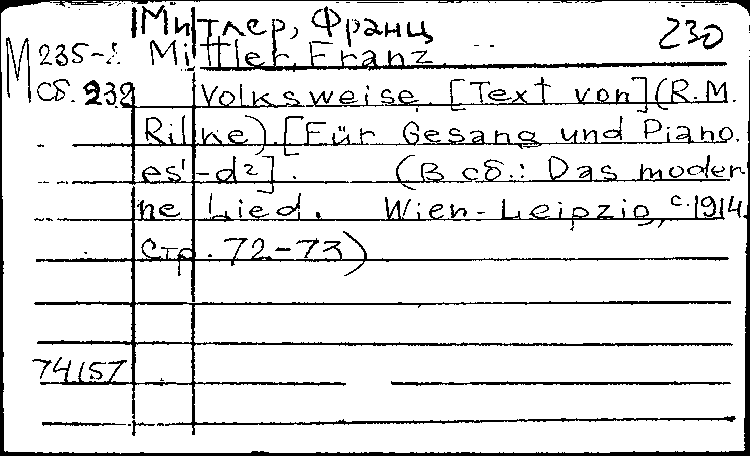 Митлер, Франц 230
М 235-2 Mittler Franz
Сб. 232 Volksweise. [Text von] (R. M.
Rilke). [Für Gesang und Piano.
es'-d²]. (В сб.: Das moder
ne Lied. Wien-Leipzig, c. 1914.
Стр. 72-73)
74157